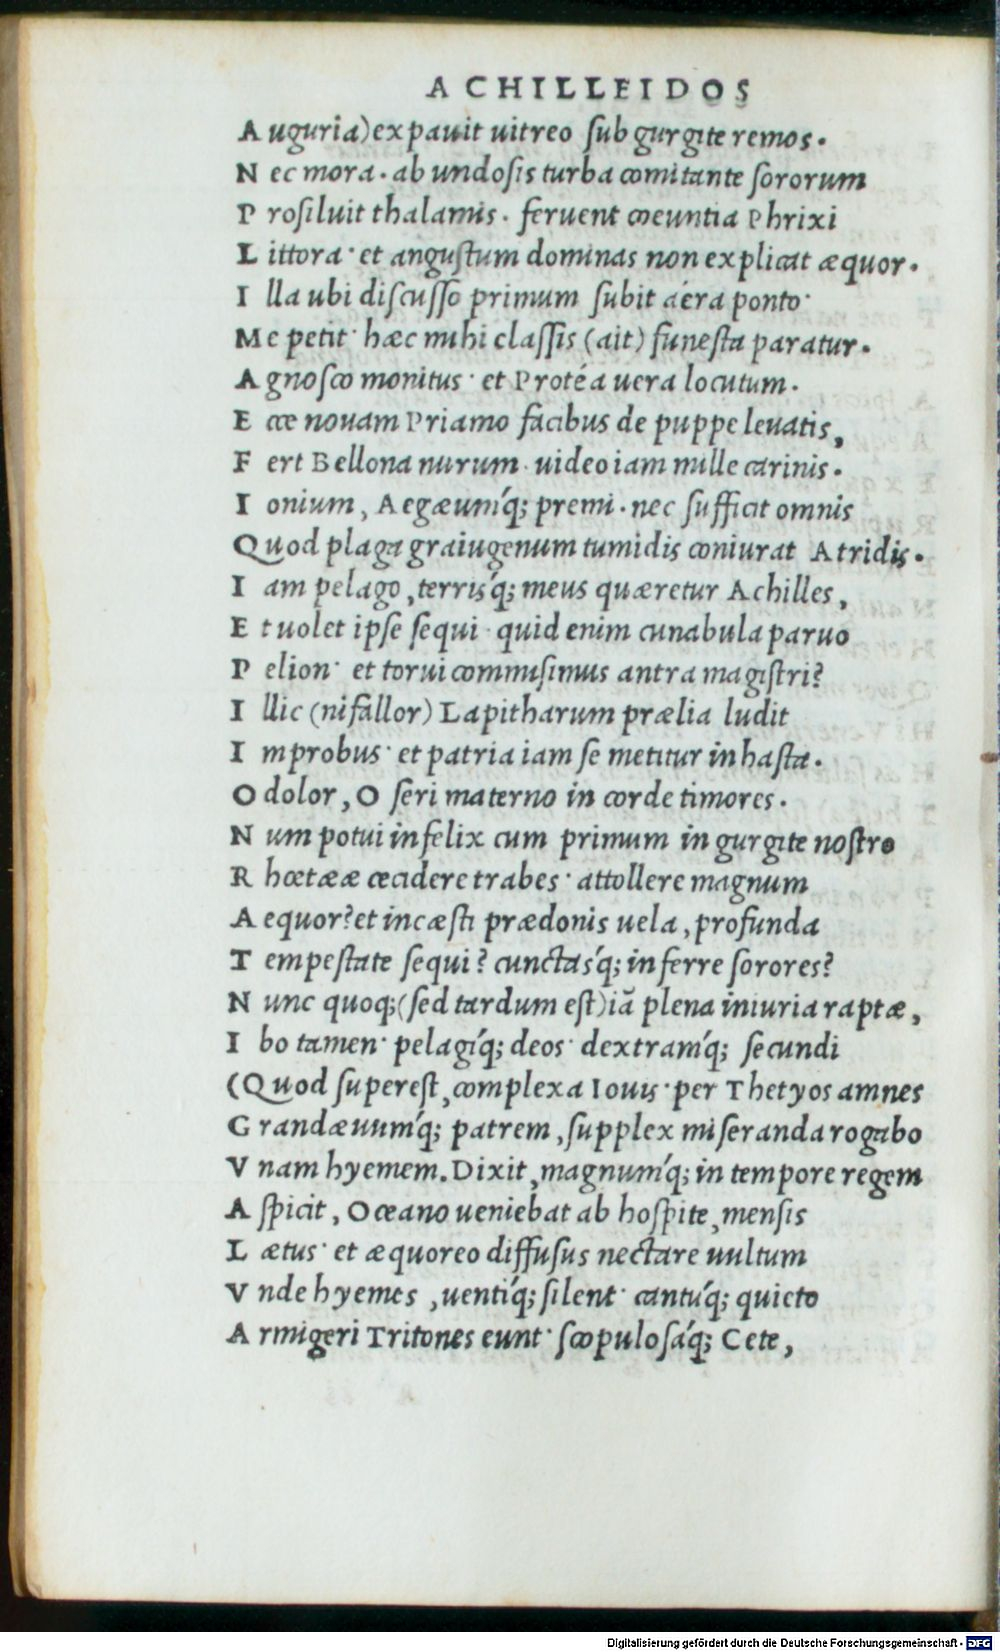 ACHILLEIDOS
A uguria) expauit uitreo sub gurgite remos.
N ec mora. ab undosis turba comitante sororum
P rosiluit thalamis. feruent coeuntia Phrixi
L ittora· et angustum dominas non explicat æquor.
I lla ubi discusso primum subit aéra ponto·
M e petit· hæc mihi classis (ait) funesta paratur.
A gnosco monitus· et Protéa uera locutum.
E cce nouam Priamo facibus de puppe leuatis,
F ert Bellona nurum· uideo iam mille carinis.
I onium, Aegæumq́; premi. nec sufficit omnis
Quod plaga graiugenum tumidis coniurat Atridis.
I am pelago, terrisq́; meus quæretur Achilles,
E t uolet ipse sequi· quid enim cunabula paruo
P elion· et torui commisimus antra magistri?
I llic (ni fallor) Lapitharum prælia ludit
I mprobus· et patria iam se metitur in hasta.
O dolor, O seri materno in corde timores.
N um potui infelix cum primum in gurgite nostro
R hœtææ cecidere trabes· attollere magnum
A equor? et incæsti prædonis uela, profunda
T empestate sequi? cunctasq́; inferre sorores?
N unc quoq; (sed tardum est) iã plena iniuria raptæ,
I bo tamen· pelagiq́; deos· dextramq́; secundi
(Quod superest, complexa Iouis· per Thetyos amnes
G randæuumq́; patrem, supplex miseranda rogabo
V nam hyemem. Dixit, magnumq́; in tempore regem
A spicit, Oceano ueniebat ab hospite, mensis
L ætus· et æquoreo diffusus nectare uultum
V nde hyemes, uentiq́; silent· cantuq́; quieto
A rmigeri Tritones eunt· scopulosaq́; Cete,
Digitalisierung gefördert durch die Deutsche Forschungsgemeinschaft - DFG